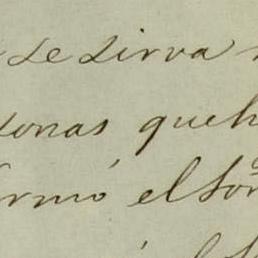 se sirva
sonas queh
rmó el Sor